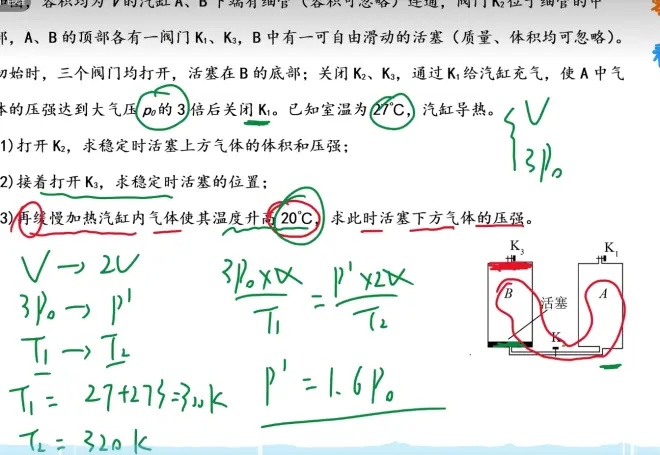 容积均为 V 的汽缸 A、B 下端有细管（容积可忽略）连通，阀门 K₂ 位于细管的中
部，A、B 的顶部各有一阀门 K₁、K₃，B 中有一可自由滑动的活塞（质量、体积均可忽略）。
初始时，三个阀门均打开，活塞在 B 的底部；关闭 K₂、K₃，通过 K₁ 给汽缸充气，使 A 中气
体的压强达到大气压 p₀ 的 3 倍后关闭 K₁。已知室温为 27℃，汽缸导热。
1)打开 K₂，求稳定时活塞上方气体的体积和压强；
2)接着打开 K₃，求稳定时活塞的位置；
3)再缓慢加热汽缸内气体使其温度升高 20℃，求此时活塞下方气体的压强。
V
3P₀
K₃
K₁
B
A
活塞
K
V → 2V
3P₀ → P'
T₁ → T₂
T₁ = 27+273=300K
T₂ = 320K
3P₀×V / T₁ = P'×2V / T₂
P' = 1.6P₀